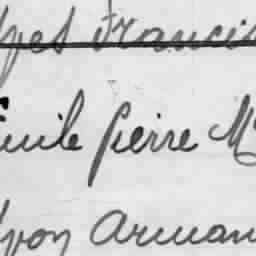 Francis
Emile Pierre M
Yvon Arman